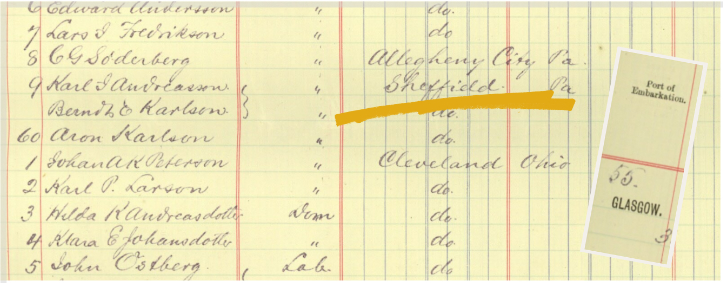 6 Edward Andersson " do.
7 Lars J Fredrikson " do
8 C G Söderberg " Allegheny City Pa.
9 Karl J Andreasson " Sheffield. Pa
Berndt E Karlson " do.
60 Aron Karlson " do.
1 Johan A K Peterson " Cleveland Ohio
2 Karl P. Larson " do.
3 Hilda K Andreasdotter Dom do.
4 Klara E Johansdotter " do
5 John Ostberg. Lab. do
Port of
Embarkation.
55.
GLASGOW.
3